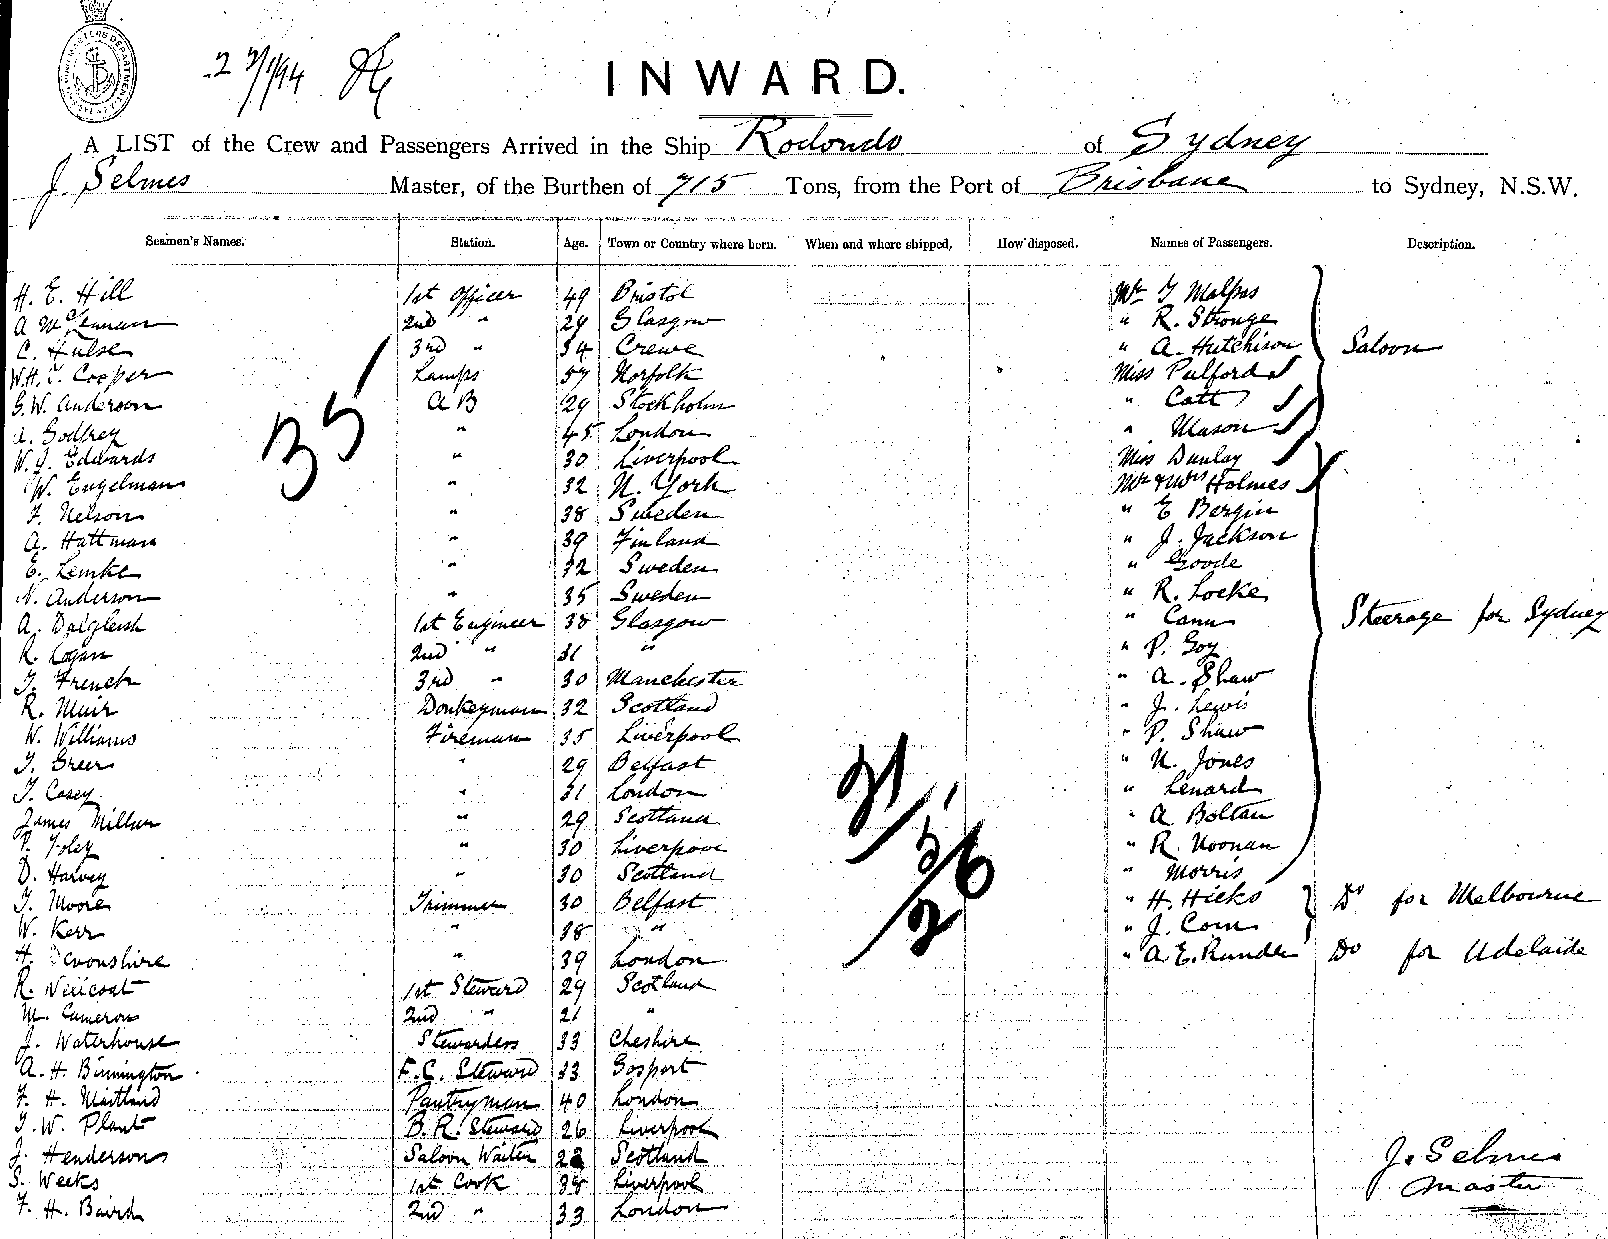 22/1/94
INWARD.
A LIST of the Crew and Passengers Arrived in the Ship Rodondo of Sydney
J. Selmes Master, of the Burthen of 715 Tons, from the Port of Brisbane to Sydney, N.S.W.
Seamen's Names. Station. Age. Town or Country where born. When and where shipped, How disposed. Names of Passengers. Description.
H. E. Hill 1st Officer 49 Bristol Mr T Malpas
A McLennan 2nd " 29 Glasgow " R. Stronge
C. Hulse 3rd " 34 Crewe " A. Hutchison Saloon
W.H.T. Cooper Lamps 57 Norfolk Miss Pulford
G.W. Anderson A B 29 Stockholm " Catt
A. Godfrey " 45 London " Mason
W.J. Edwards " 30 Liverpool Miss Dunlay
W. Engelman " 32 N. York Mr & Mrs Holmes
F. Nelson " 38 Sweden " E Bergin
A. Hattman " 39 Finland " J. Jackson
E. Lemke " 32 Sweden " Goode
N. Anderson " 35 Sweden " R. Locke
A. Dalgleish 1st Engineer 38 Glasgow " Cann Steerage for Sydney
R. Logan 2nd " 31 " " P. Goy
T. French 3rd " 30 Manchester " A. Shaw
R. Muir Donkeyman 32 Scotland " J. Lewis
W. Williams Fireman 35 Liverpool " P. Shaw
T. Greer " 29 Belfast " N. Jones
T. Casey " 31 London " Lenard
James Millar " 29 Scotland " A Boltan
P. Foley " 30 Liverpool " R. Noonan
D. Harvey " 30 Scotland " Morris
T. Moore Trimmer 30 Belfast " H. Hicks Do for Melbourne
W. Kerr " 38 " " J. Corn
H. Devonshire " 39 London " A. E. Rundle Do for Adelaide
R. Neilcoat 1st Steward 29 Scotland
M. Cameron 2nd " 21 "
J. Waterhouse Stewardess 33 Cheshire
A. H. Binnington F.C. Steward 33 Gosport
F. H. Maitland Pantryman 40 London
T. W. Plant B.R. Steward 26 Liverpool
J. Henderson Saloon Waiter Scotland
S. Weeks 1st Cook 38 Liverpool
F. H. Baird 2nd " 33 London
35
21
5
26
J. Selmes
Master